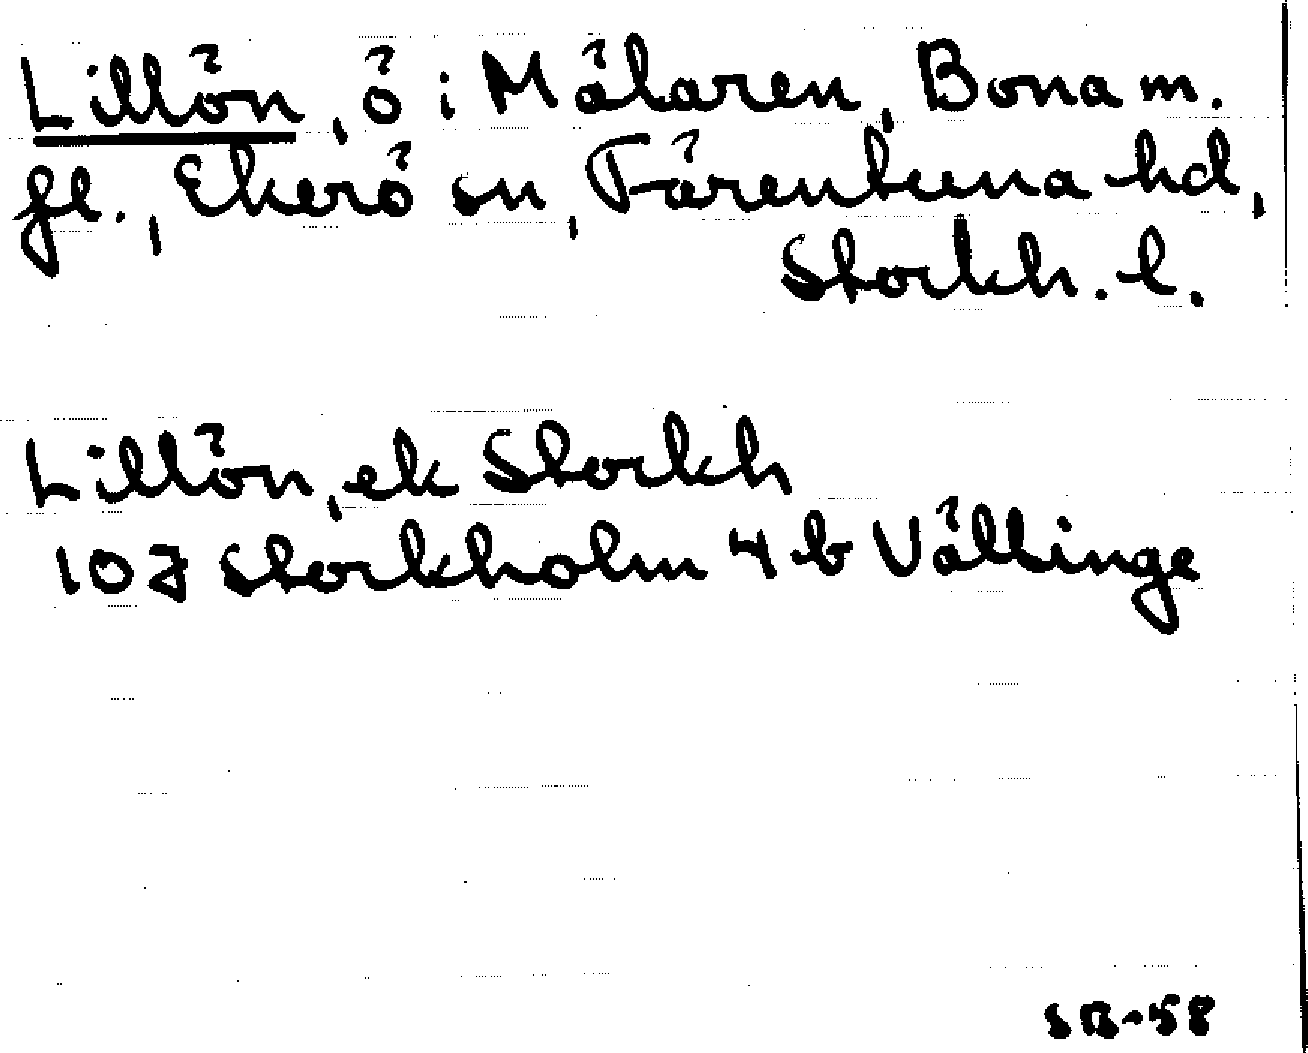 Lillön, ö i Mälaren, Bona m.
fl., Ekerö sn, Färentuna hd,
Stockh. l.
Lillön, ek Stockh
10J Stockholm 4 b Vällinge
SB-58